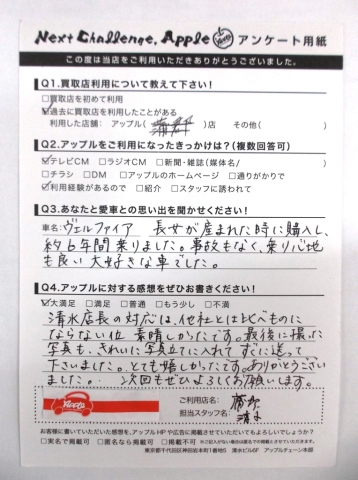 Next Challenge, Apple アンケート用紙
この度は当店をご利用いただきありがとうございました。
Q1.買取店利用について教えて下さい!
□買取店を初めて利用
☑過去に買取店を利用したことがある
利用した店舗: アップル( 蒲郡 )店 その他( )
Q2.アップルをご利用になったきっかけは?(複数回答可)
☑テレビCM □ラジオCM □新聞・雑誌(媒体名/ )
□チラシ □DM □アップルのホームページ □通りがかりで
☑利用経験があるので □紹介 □スタッフに誘われて
Q3.あなたと愛車との思い出を聞かせください!
車名: ヴェルファイア 長女が産まれた時に購入し、
約6年間乗りました。事故もなく、乗り心地
も良い大好きな車でした。
Q4.アップルに対する感想をぜひお書きください!
☑大満足 □満足 □普通 □もう少し □不満
清水店長の対応は、他社とは比べものに
ならない位 素晴しかったです。最後に撮った
写真も、きれいに写真立てに入れて すぐに送って
下さいました。とても嬉しかったです。ありがとうござい
ました。 次回もぜひよろしくお願いします。
Apple
ご利用店名: 蒲郡
担当スタッフ名: 清水
お客様に書いていただいた感想を、アップルHPや広告に掲載させていただいてもよろしいでしょうか?
□実名で掲載可 □匿名なら掲載可 □掲載不可 ※ご記入がない場合は匿名での掲載とさせていただきます。
東京都千代田区神田岩本町1番地5 清水ビル6F アップルチェーン本部